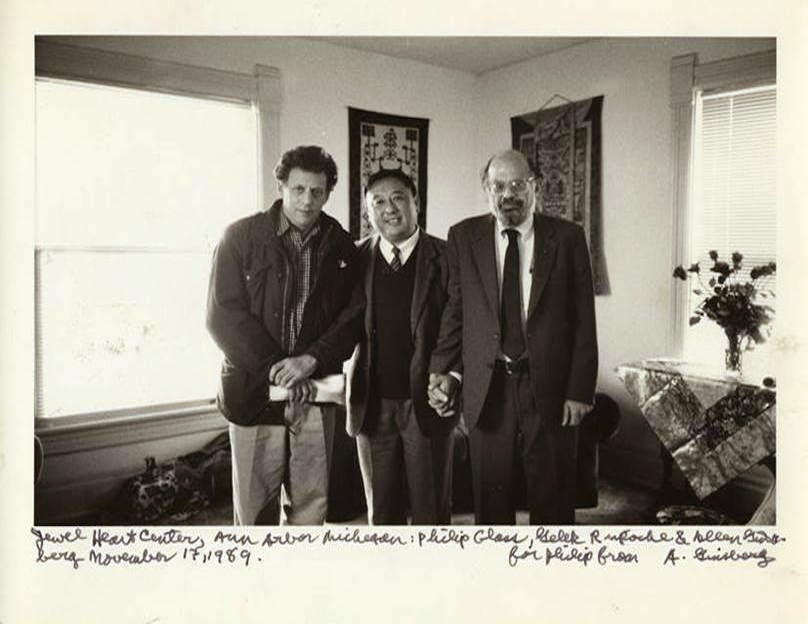 Jewel Heart Center, Ann Arbor Michegan: Philip Glass, Gelek Rinpoche & Allen Gins-
berg November 17, 1989. for Philip from A. Ginsberg